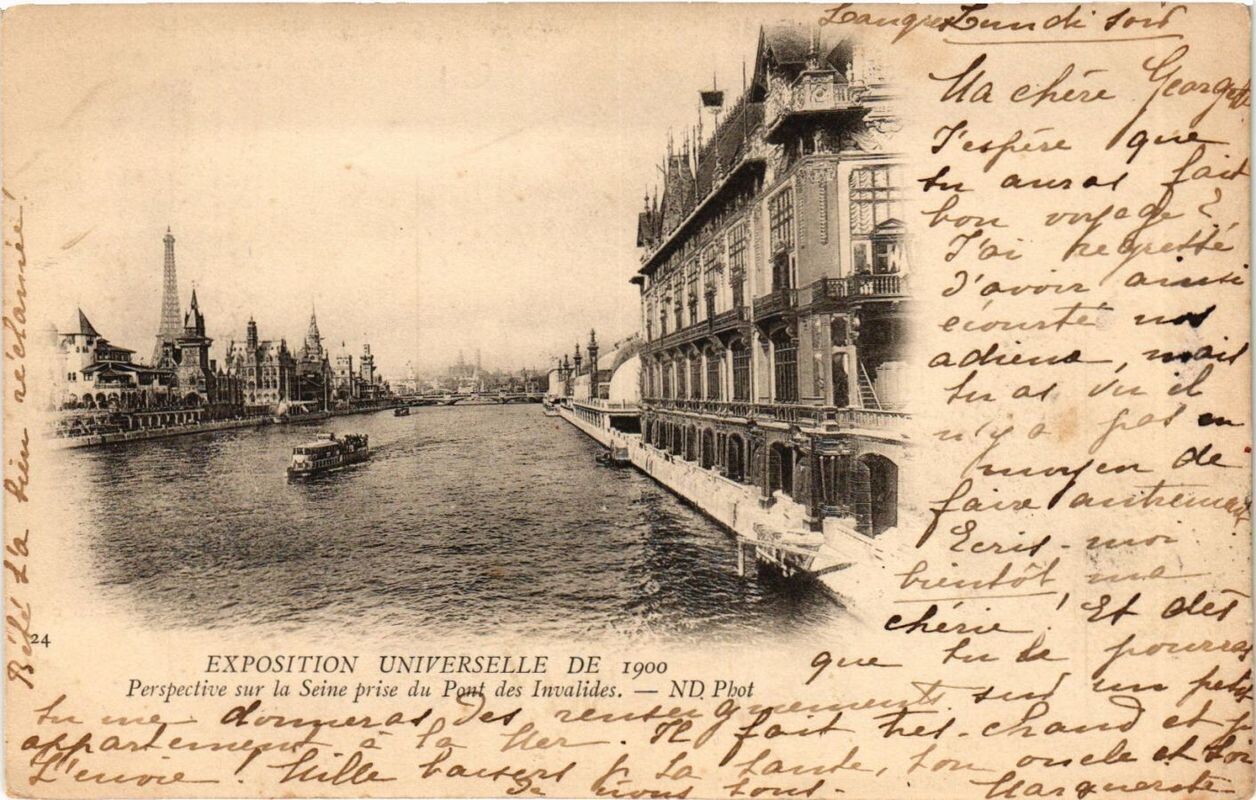 Langres Lundi soir
Ma chère Georgette
J'espère que
tu auras fait
bon voyage?
J'ai regretté
d'avoir ainsi
écourté nos
adieux, mais
tu as vu il
n'y a pas eu
moyen de
faire autrement
Ecris-moi
bientôt ma
chérie! Et dès
que tu le pourras
tu me donneras des renseignements sur un petit
appartement à la Mer. Il fait très-chaud et je
l'envie! Mille baisers p. ta tante, ton oncle et toi
De nous tous. Marguerite
Bébé t'a bien réclamée!
24
EXPOSITION UNIVERSELLE DE 1900
Perspective sur la Seine prise du Pont des Invalides. — ND Phot